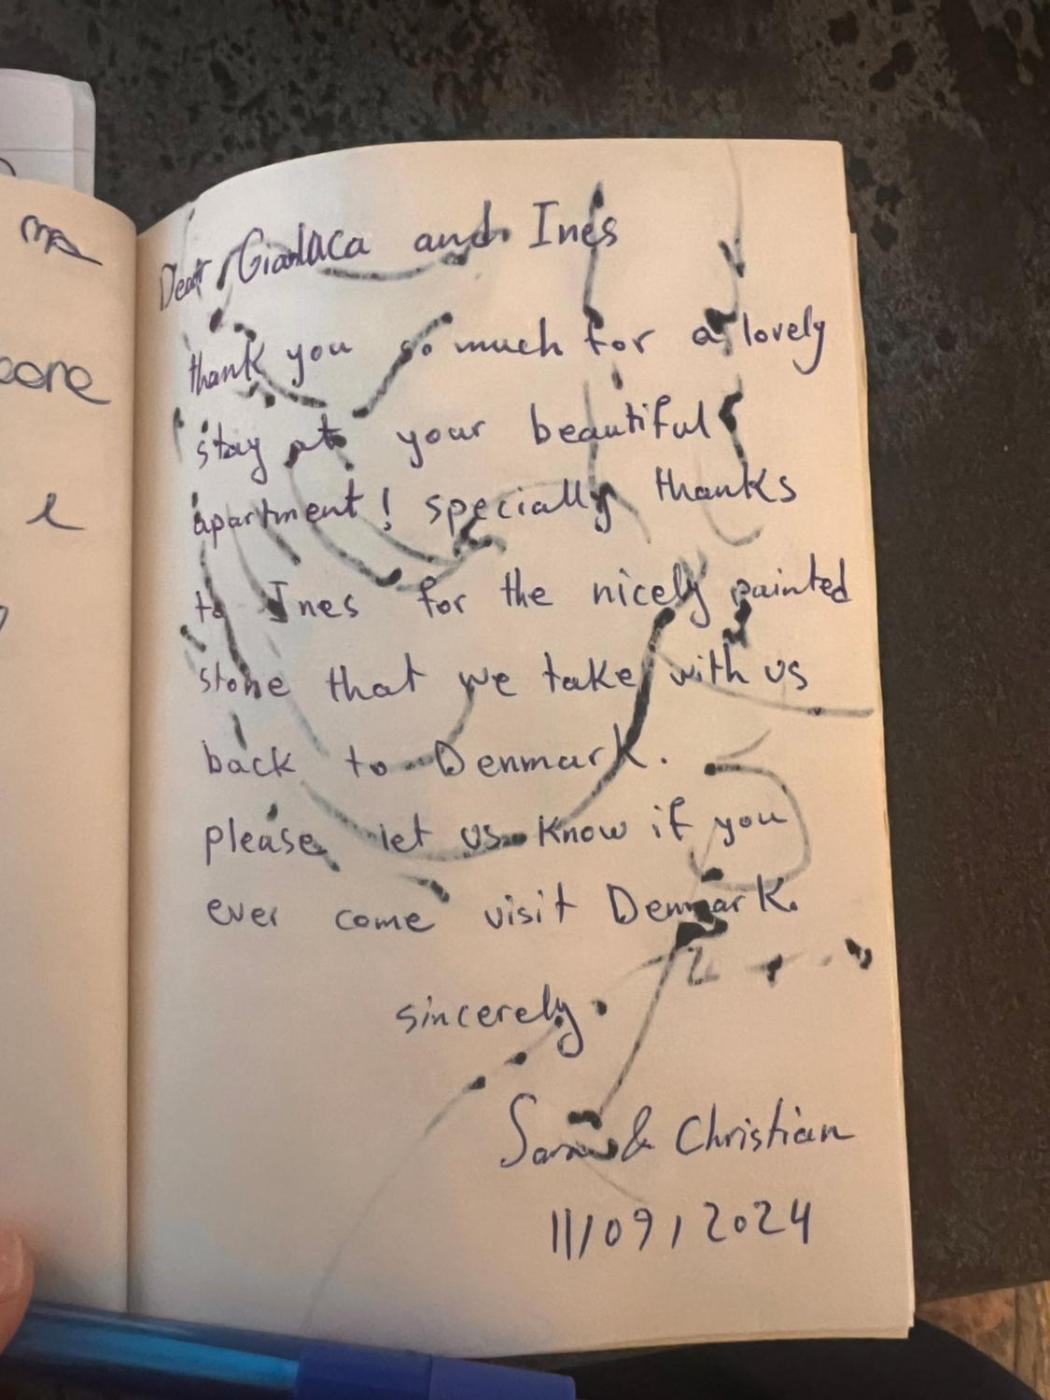 me
core
e
Dear Gianluca and Ines
thank you so much for a lovely
stay at your beautiful
apartment! specially thanks
to Ines for the nicely painted
stone that we take with us
back to Denmark.
please let us know if you
ever come visit Denmark.
sincerely
& Christian
11/09/2024